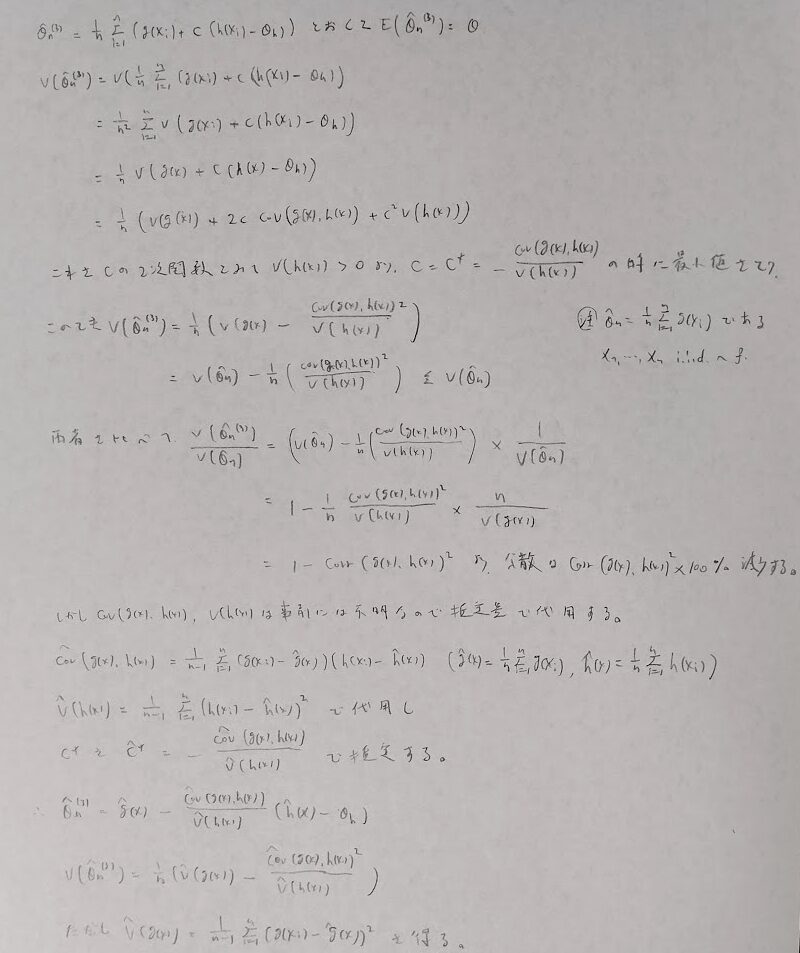 θ̂n^(3) = 1/n Σ_{i=1}^n (g(Xi) + c (h(Xi) − θh)) とおくと E(θ̂n^(3)) = θ
V(θ̂n^(3)) = V(1/n Σ_{i=1}^n (g(Xi) + c (h(Xi) − θh))
= 1/n² Σ_{i=1}^n V (g(Xi) + c(h(Xi) − θh))
= 1/n V(g(X) + c (h(X) − θh))
= 1/n (V(g(X)) + 2c Cov(g(X), h(X)) + c² V(h(X)))
これを c の 2次関数とみて V(h(X)) > 0 より, c = c⁺ = − Cov(g(X), h(X)) / V(h(X)) の時に最小値をとり,
このとき V(θ̂n^(3)) = 1/n (V(g(X)) − Cov(g(X), h(X))² / V(h(X)))
注 θ̂n = 1/n Σ_{i=1}^n g(Xi) である
= V(θ̂n) − 1/n (Cov(g(X), h(X))² / V(h(X))) ≦ V(θ̂n)
X1, ..., Xn i.i.d. ~ f.
両者を比べて, V(θ̂n^(3)) / V(θ̂n) = (V(θ̂n) − 1/n (Cov(g(X), h(X))² / V(h(X))) × 1 / V(θ̂n)
= 1 − 1/n Cov(g(X), h(X))² / V(h(X)) × n / V(g(X))
= 1 − Corr (g(X), h(X))² より, 分散は Corr (g(X), h(X))² × 100 % 減少する。
しかし Cov(g(X), h(X)), V(h(X)) は事前には不明なので推定量で代用する。
Ĉov (g(X), h(X)) = 1/(n−1) Σ_{i=1}^n (g(Xi) − ĝ(X)) (h(Xi) − ĥ(X)) (ĝ(X) = 1/n Σ_{i=1}^n g(Xi), ĥ(X) = 1/n Σ_{i=1}^n h(Xi))
V̂(h(X)) = 1/(n−1) Σ_{i=1}^n (h(Xi) − ĥ(X))² で代用し
c⁺ を ĉ⁺ = − Ĉov (g(X), h(X)) / V̂(h(X)) で推定する。
∴ θ̂n^(3) = ĝ(X) − Ĉov (g(X), h(X)) / V̂(h(X)) (ĥ(X) − θh)
V(θ̂n^(3)) = 1/n (V̂(g(X)) − Ĉov (g(X), h(X))² / V̂(h(X)))
ただし V̂(g(X)) = 1/(n−1) Σ_{i=1}^n (g(Xi) − ĝ(X))² を得る。